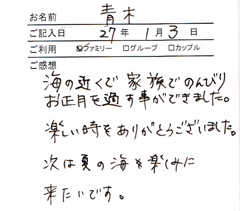 お名前 青木
ご記入日 27年 1月 3日
ご利用 ☑ファミリー □グループ □カップル
ご感想
海の近くで家族でのんびり
お正月を過す事ができました。
楽しい時をありがとうございました。
次は夏の海を楽しみに
来たいです。